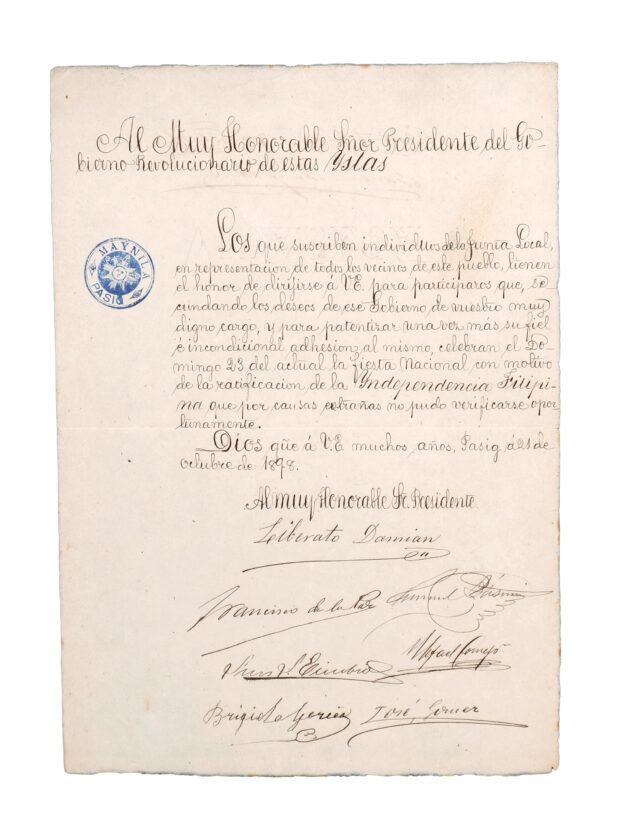 Al Muy Honorable Señor Presidente del Go-
bierno Revolucionario de estas Yslas
MAYNILA
PASIG
Los que suscriben individuos de la Junta Local,
en representacion de todos los vecinos de este pueblo, tienen
el honor de dirijirse á V.E. para participaros que, se
cundando los deseos de ese Gobierno de vuestro muy
digno cargo, y para patentizar una vez más su fiel
é incondicional adhesion al mismo, celebran el Do-
mingo 23 del actual la fiesta Nacional con motivo
de la ratificacion de la Yndependencia Filipi-
na que por causas extrañas no pudo verificarse opor
tunamente.
Dios gũe á V.E muchos años, Pasig á 21 de
Octubre de 1898.
Al muy Honorable Sr. Presidente
Liberato Damian
Francisco de la Paz
Rafael
José